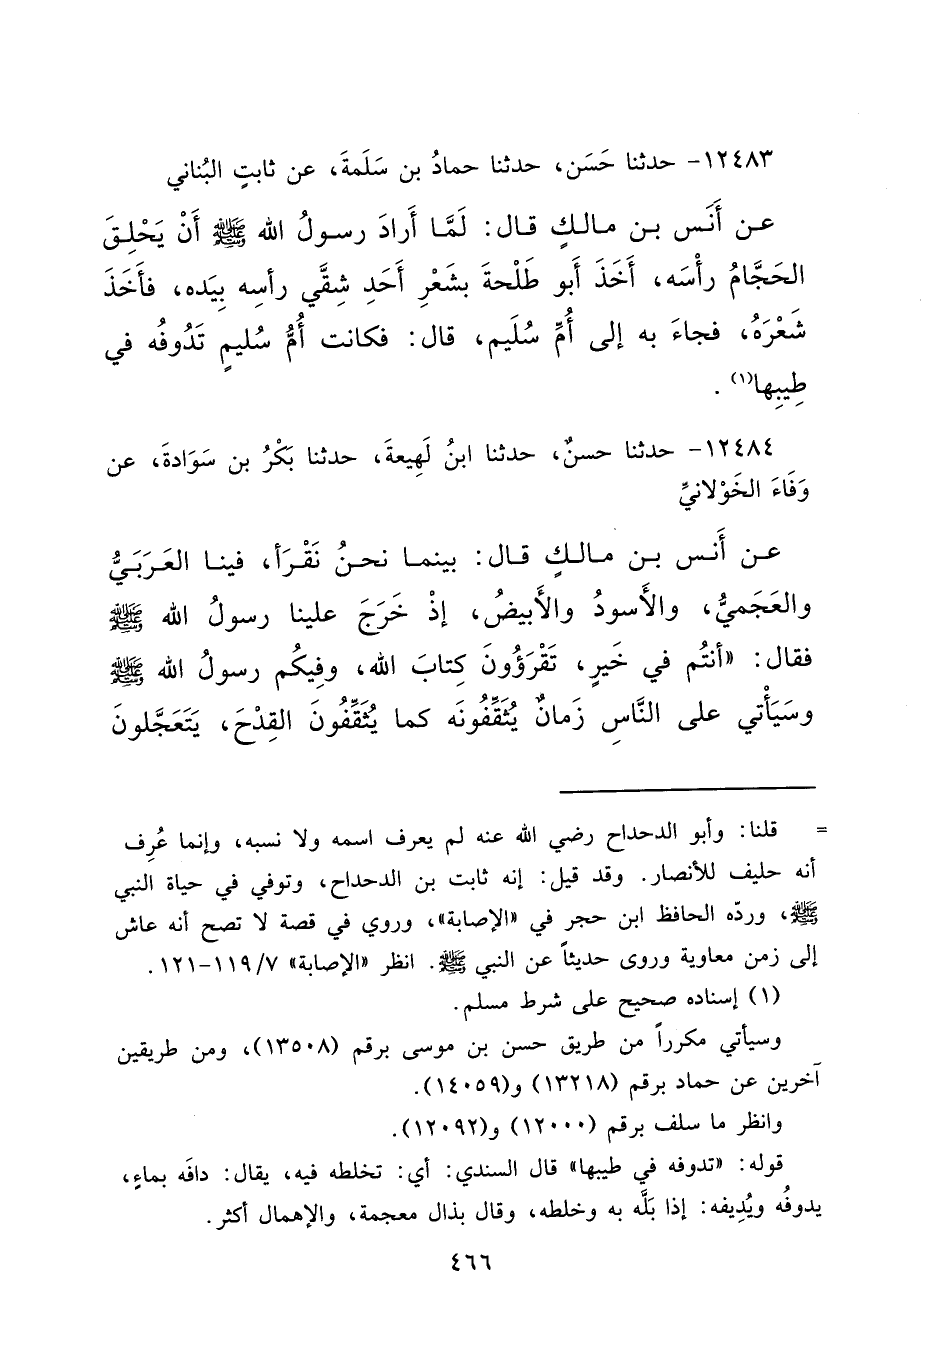 ١٢٤٨٣- حدثنا حَسَن، حدثنا حمادُ بن سَلَمةَ، عن ثابتٍ البُناني
عن أَنَس بن مالكٍ قال: لَمَّا أَرادَ رسولُ الله ﷺ أَنْ يَحْلِقَ
الحَجَّامُ رأْسَه، أَخَذَ أَبو طَلْحةَ بشَعْرِ أَحَدِ شِقَّي رأسِه بِيَده، فأَخَذَ
شَعْرَهُ، فجاءَ به إلى أُمِّ سُلَيم، قال: فكانت أُمُّ سُليمٍ تَدُوفُه في
طِيبِها(١) .
١٢٤٨٤- حدثنا حسنٌ، حدثنا ابنُ لَهِيعةَ، حدثنا بَكْرُ بن سَوَادةَ، عن
وَفَاءَ الخَوْلانيِّ
عن أَنس بن مالكٍ قال: بينما نحنُ نَقْرَأ، فينا العَرَبيُّ
والعَجَميُّ، والأَسودُ والأَبيضُ، إذْ خَرَجَ علينا رسولُ الله ﷺ
فقال: «أَنتُم في خَيرٍ، تَقْرَؤُونَ كِتابَ الله، وفِيكُم رسولُ الله ﷺ
وسَيَأْتي على النَّاسِ زَمانٌ يُثَقِّفُونَه كما يُثَقِّفُونَ القِدْحَ، يَتَعَجَّلونَ
= قلنا: وأبو الدحداح رضي الله عنه لم يعرف اسمه ولا نسبه، وإنما عُرِف
أنه حليف للأنصار. وقد قيل: إنه ثابت بن الدحداح، وتوفي في حياة النبي
ﷺ، وردّه الحافظ ابن حجر في «الإصابة»، وروي في قصة لا تصح أنه عاش
إلى زمن معاوية وروى حديثاً عن النبي ﷺ. انظر «الإصابة» ١١٩/٧-١٢١.
(١) إسناده صحيح على شرط مسلم.
وسيأتي مكرراً من طريق حسن بن موسى برقم (١٣٥٠٨)، ومن طريقين
آخرين عن حماد برقم (١٣٢١٨) و(١٤٠٥٩).
وانظر ما سلف برقم (١٢٠٠٠) و(١٢٠٩٢).
قوله: «تدوفه في طيبها» قال السندي: أي: تخلطه فيه، يقال: دافَه بماءٍ،
يدوفُه ويُدِيفه: إذا بَلَّه به وخلطه، وقال بذال معجمة، والإهمال أكثر.
٤٦٦